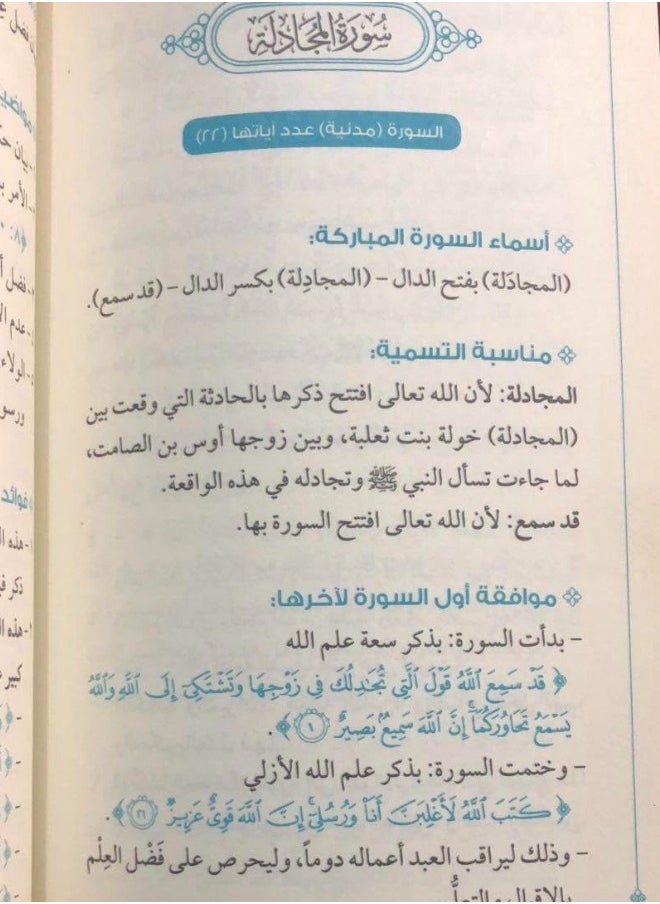 سُورَةُ المُجَادلَة
السورة (مدنية) عدد آياتها (٢٢)
أسماء السورة المباركة:
(المجادَلة) بفتح الدال – (المجادِلة) بكسر الدال – (قد سمع).
مناسبة التسمية:
المجادلة: لأن الله تعالى افتتح ذكرها بالحادثة التي وقعت بين
(المجادلة) خولة بنت ثعلبة، وبين زوجها أوس بن الصامت،
لما جاءت تسأل النبي ﷺ وتجادله في هذه الواقعة.
قد سمع: لأن الله تعالى افتتح السورة بها.
موافقة أول السورة لآخرها:
– بدأت السورة: بذكر سعة علم الله
﴿ قَدْ سَمِعَ ٱللَّهُ قَوْلَ ٱلَّتِي تُجَٰدِلُكَ فِي زَوْجِهَا وَتَشْتَكِيٓ إِلَى ٱللَّهِ وَٱللَّهُ
يَسْمَعُ تَحَاوُرَكُمَآ إِنَّ ٱللَّهَ سَمِيعٌۢ بَصِيرٌ ١ ﴾.
– وختمت السورة: بذكر علم الله الأزلي
﴿ كَتَبَ ٱللَّهُ لَأَغْلِبَنَّ أَنَا۠ وَرُسُلِيٓ إِنَّ ٱللَّهَ قَوِيٌّ عَزِيزٌ ٢١ ﴾.
– وذلك ليراقب العبد أعماله دوماً، وليحرص على فَضْل العِلْم